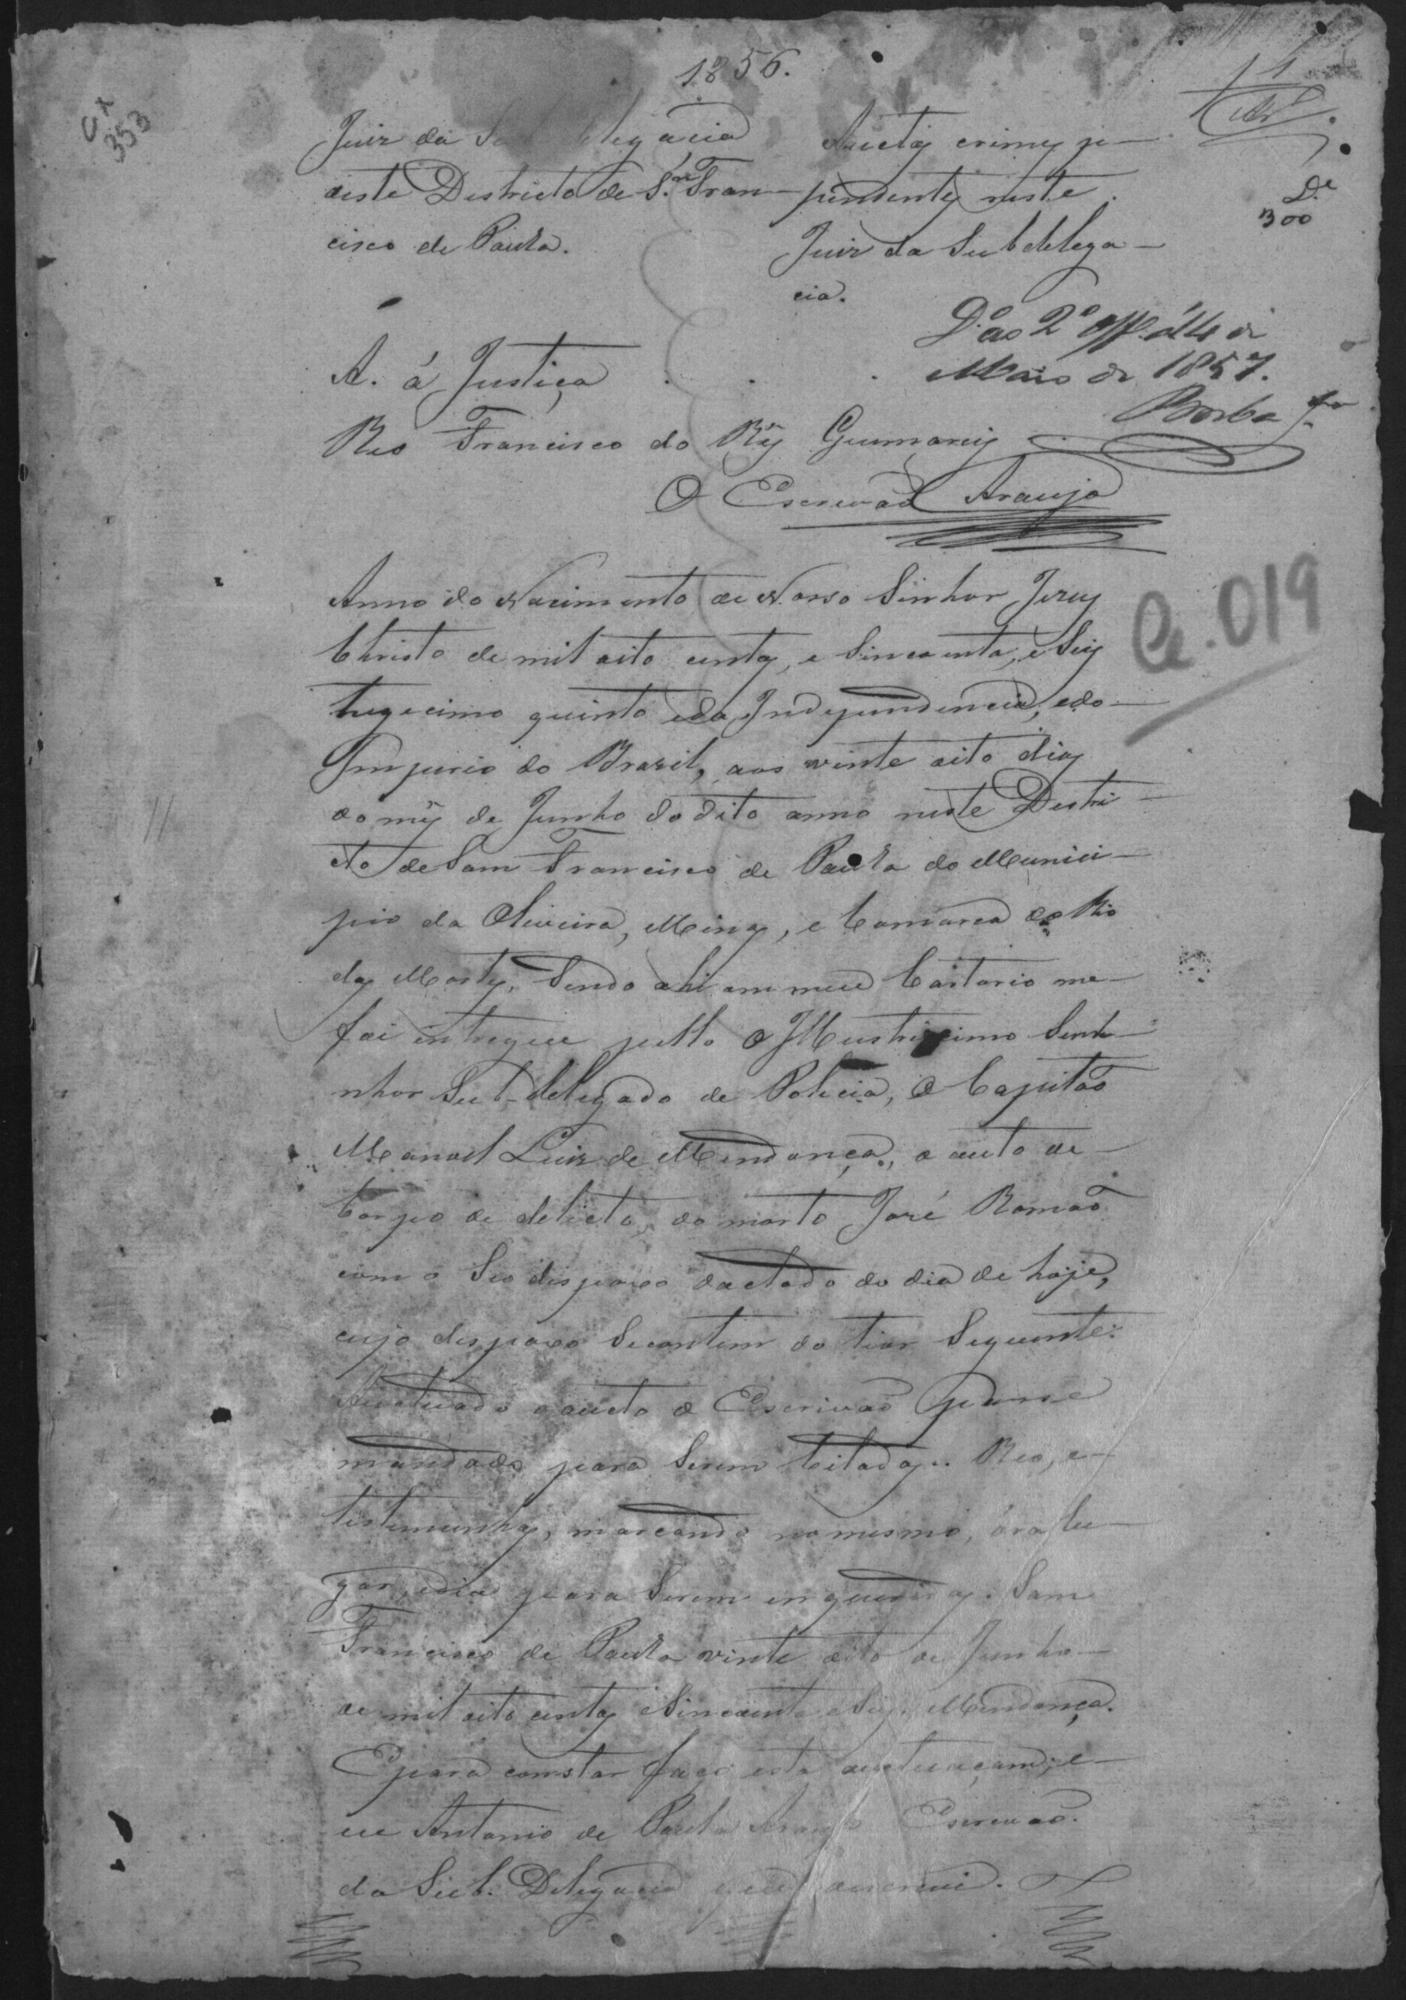 1856.
1
Cx
353
Juiz da Subdelegacia
deste Districto de S. Fran-
cisco de Paula.
Auctos crimes
pendentes neste
Juiz da Subdelega-
cia.
De
300
D. ao 2º Off. 14 de
Maio de 1857.
Borba
A. á Justiça
Reo Francisco do Reis Guimarães
O Escrivaõ Araujo
Ce. 019
Anno do Nacimento de Nosso Sinhor Jezus
Christo de mil oito centos, e Sincoenta, e Seis
trigecimo quinto eda Independencia, edo
Imperio do Brazil, aos vinte oito dias
do mês de Junho do dito anno neste Destri-
cto de Sam Francisco de Paula do Munici-
pio da Oliveira, Minas, e Comarca do Rio
das Mortes, Sendo ahi em meu Cartorio me-
foi intregue pello o Illustricimo Senh-
nhor Sub-delegado de Policia, o Capitaõ
Manoel Luiz de Mendonça, o auto de-
Corpo de delicto, do morto José Romaõ
com o Seo despaxo dactado do dia de hoje,
cujo despaxo Secontem do tior Seguente:
Auctuado o aucto o Escrivaõ passe
mandado para Serem Citados. Reo, e-
testemunhas, marcando no mesmo, óra lu-
gar, edia para Serem inqueridas. Sam
Francisco de Paula vinte oito de Junho-
de mil oito centos eSincoenta eSeis. Mendonça.
E para constar faço esta auctuaçam, e-
eu Antonio de Paula Araujo Escrivaõ.
da Sub. Delegacia que escrevi.